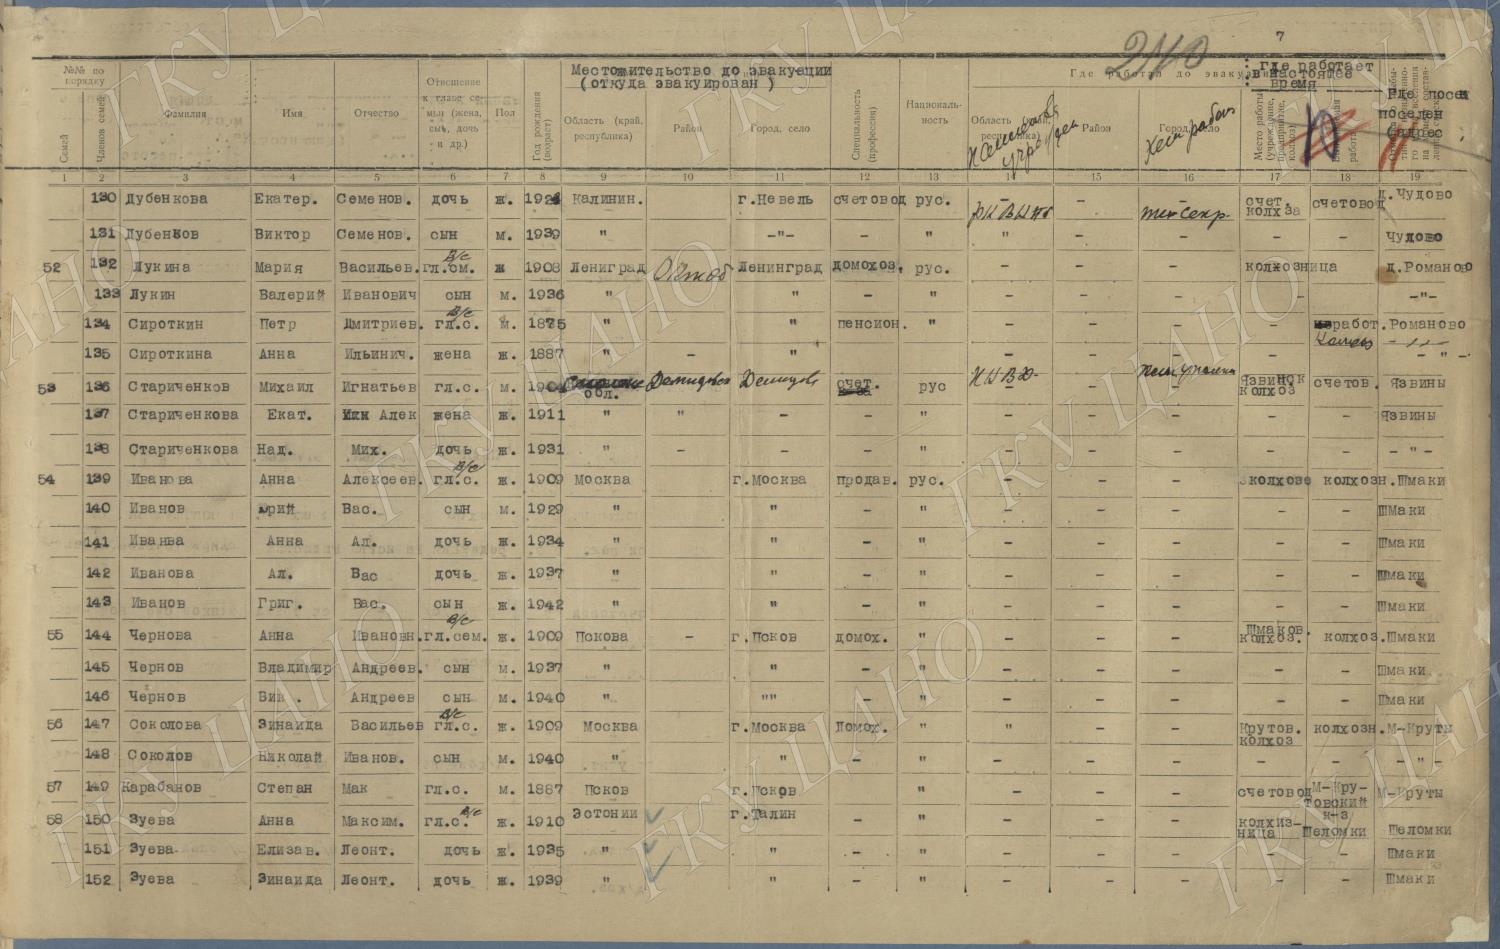 7
2110
№№ по порядку
Семей
Членов семей
Фамилия
Имя
Отчество
Отношение к главе семьи (жена, сын, дочь и др.)
Пол
Год рождения (возраст)
Местожительство до эвакуации
(откуда эвакуирован)
Область (край, республика)
Район
Город, село
Специальность (профессия)
Националь-ность
Где работал до эвакуации
Область (край, республика)
Район
Город, село
Где работает в настоящее время
Место работы (учреждение, предприятие, колхоз)
Где посел
поселен
(адрес
1 2 3 4 5 6 7 8 9 10 11 12 13 14 15 16 17 18 19
130 Дубенкова Екатер. Семенов. дочь ж. 1924 Калинин. г.Невель счетовод рус. – – счет. колхза счетовод д.Чудово
131 Дубенков Виктор Семенов. сын м. 1939 " –"– – " " – – – – Чудово
52 132 Лукина Мария Васильев. гл.см. в/с ж 1908 Лениград Ленинград домохоз. рус. – – – колхозница д.Романово
133 Лукин Валерий Иванович сын м. 1936 " " – " – – – – – –"–
134 Сироткин Петр Дмитриев. гл.с. в/с м. 1875 " " пенсион. " – – – – неработ. Романово
135 Сироткина Анна Ильинич. жена ж. 1887 " – " – – – – – " –
53 136 Стариченков Михаил Игнатьев гл.с. м. 1904 обл. Демидовск Демидов счет. рус НКВД – – Язвинок колхоз счетов. Язвины
137 Стариченкова Екат. Алек жена ж. 1911 " " – – " – – – – – Язвины
138 Стариченкова Над. Мих. дочь ж. 1931 " – – – " – – – – – – " –
54 139 Иванова Анна Алексеев. гл.с. в/с ж. 1909 Москва г.Москва продав. рус. – – – колхозе колхозн. Шмаки
140 Иванов Юрий Вас. сын м. 1929 " " – " – – – – – ШМаки
141 Иванва Анна Ал. дочь ж. 1934 " " – " – – – – – Шмаки
142 Иванова Ал. Вас дочь ж. 1937 " " – " – – – – – Шмаки
143 Иванов Григ. Вас. сын ж. 1942 " " – " – – – – – Шмаки
55 144 Чернова Анна Ивановн. гл.сем. в/с ж. 1909 Пскова – г.Псков домох. " – – – Шмаков. колхоз. колхоз. Шмаки
145 Чернов Владимир Андреев. сын м. 1937 " " – " – – – – – Шмаки
146 Чернов Вик. Андреев сын м. 1940 " "" – " – – – – – Шмаки
56 147 Соколова Зинаида Васильев гл.с. в/с ж. 1909 Москва г.Москва Домох. " " – – Крутов. колхоз колхозн. М-Круты
148 Соколов Николай Иванов. сын м. 1940 " " – " – – – – – – " –
57 149 Карабанов Степан Мак гл.с. м. 1887 Псков г.Псков " – – – счетовод М-Кру-товский к-з М-Круты
58 150 Зуева Анна Максим. гл.с. в/с ж. 1910 Эстонии г.Талин – " – – – колхиз-ница Шеломки Шеломки
151 Зуева Елизав. Леонт. дочь ж. 1935 " " – " – – – – – Шмаки
152 Зуева Зинаида Леонт. дочь ж. 1939 " " – " – – – – – Шмаки
ГКУ ЦАНО